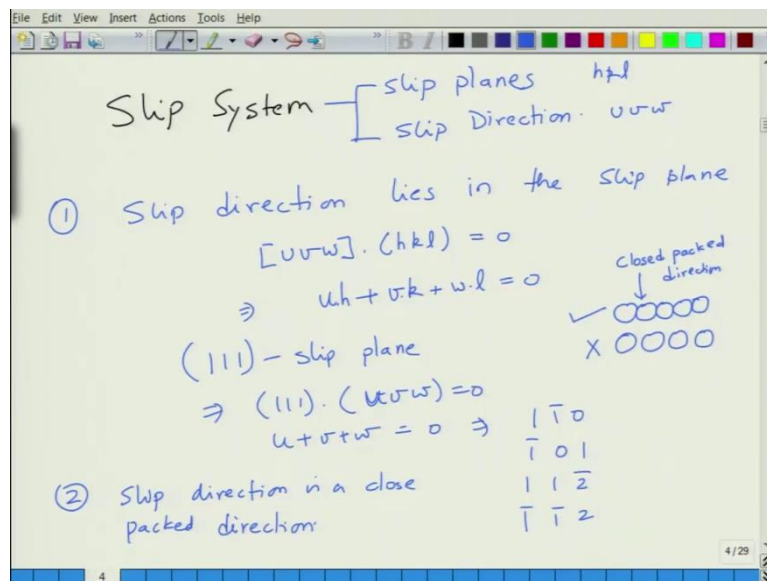 File Edit View Insert Actions Tools Help
Slip System
slip planes hkl
slip Direction. uvw
① Slip direction lies in the slip plane
[uvw].(hkl) = 0
⇒ u.h + v.k + w.l = 0
closed packed
direction
✓ OOOOO
X OOOO
(111) - slip plane
⇒ (111).(uvw) = 0
u+v+w = 0 ⇒ 1 1̅ 0
1̅ 0 1
1 1 2̅
1̅ 1̅ 2
② Slip direction is a close
packed direction.
4/29
4